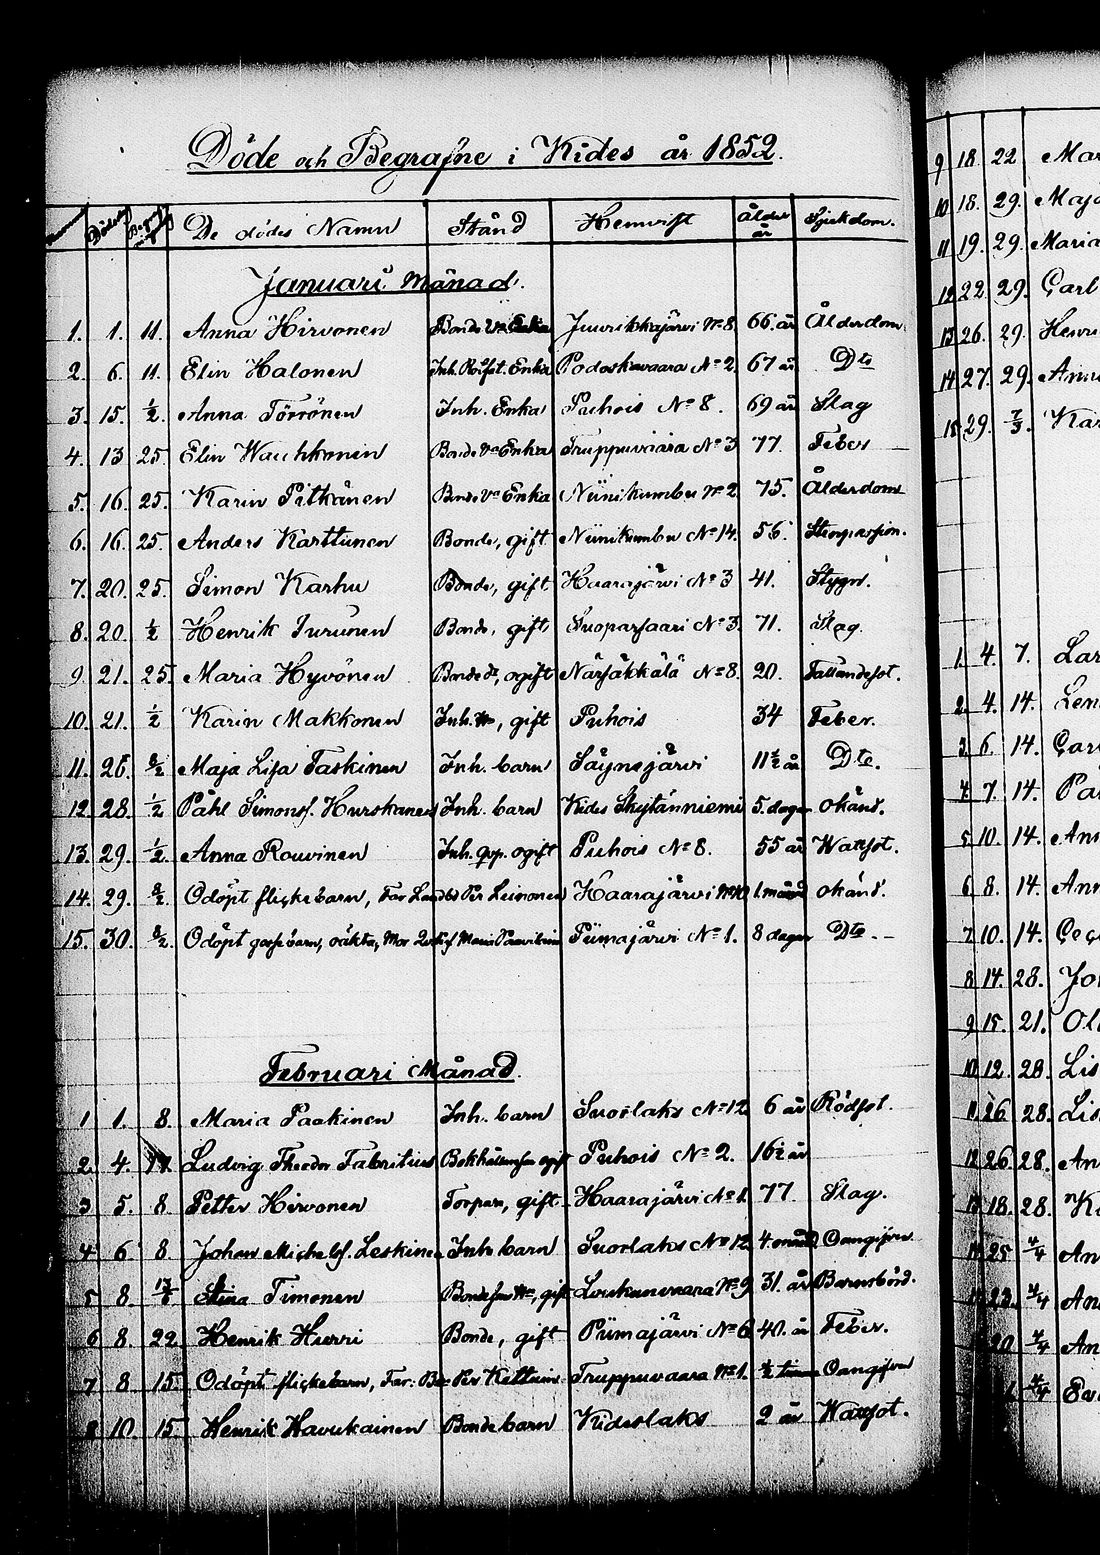 Döde och Begrafne i Kides år 1852.
Döde dag Begrafn. dag De dödes Namn Stånd Hemvist Ålder år Sjukdom.
Januari Månad.
1. 1. 11. Anna Hirvonen Bonde Enka Juurikkajärvi No 8. 66 år Ålderdom
2. 6. 11. Elin Halonen Inh. Enka Podoskavaara No 2. 67 år Dto
3. 15. 1/2 Anna Törrönen Inh. Enka Puhois No 8. 69 år Slag
4. 13 25. Elin Wauhkonen Bonde Enka Truppuvaara No 3 77. Feber
5. 16. 25. Karin Pitkänen Bonde Enka Niinikumbu No 2. 75. Ålderdom
6. 16. 25. Anders Karttunen Bonde, gift Niinikumbu No 14. 56.
7. 20. 25. Simon Karhu Bonde, gift Haarajärvi No 3 41. Stygn.
8. 20. 1/2 Henrik Turunen Bonde, gift Suoparsaari No 3. 71. Slag.
9. 21. 25. Maria Hyvönen Bonde dr, ogift Närsäkkälä No 8. 20. Fallandesot.
10. 21. 1/2 Karin Makkonen Inh. gift Puhois 34 Feber.
11. 26. 8/2 Maja Lisa Taskinen Inh. barn Säynejärvi 11 1/2 år Dto.
12. 28. 1/2 Påhl Simonsf. Hurskanen Inh. barn Kides Skytänniemi 5. dagar okänd.
13. 29. 1/2 Anna Rouvinen Inh. qvp. ogift Puhois No 8. 55 år Wattsot.
14. 29. 8/2. Odöpt flickebarn, Far Per Leinonen Haarajärvi No 10 1 månad okänd.
15. 30. 8/2. Odöpt gossebarn, oäkta, Mor Maria Piimajärvi No 1. 8 dagar Dto.
Februari Månad.
1 1. 8. Maria Paakinen Inh. barn Suorlaks No 12 6 år Rödsot.
2. 4. 17. Ludvig Theodor Fabritius Puhois No 2. 16 1/2 år
3 5. 8. Petter Hirvonen Torpare, gift Haarajärvi No 1. 77. Slag.
4 6 8. Johan Michelsf. Leskinen Inh. barn Suorlaks No 12 4 månad Oangifven
5 8. Stina Timonen Bonde gift Loukunvaara No 9 31. år Barnsbörd.
6 8. 22. Henrik Hurri Bonde, gift Piimajärvi No 6 40. år Feber.
7 8 15. Odöpt flickebarn, Far: Per Kettunen Truppuvaara No 1. 1/2 timme Oangifven
8 10. 15. Henrik Havukainen Bonde barn Kideslaks 2 år Wattsot.
9 18. 22. Mar
10 18. 29. Maja
11 19. 29. Maria
12 22. 29. Carl
13 26. 29. Henri
14 27. 29. Anna
15 29. 7/3. Kar
1. 4. 7. Lar
2. 4. 14. Len
3. 6. 14. Car
4. 7. 14. Pa
5. 10. 14. Ann
6 8. 14. Ann
7 10. 14. Cec
8 14. 28. Joh
9 15. 21. Ol
10 12. 28. Lis
11 26 28. Lis
12 26. 28. An
13 18. 28. K
14 25 4/4 An
23. 4/4 An
20 4/4 An
4/4 Ev